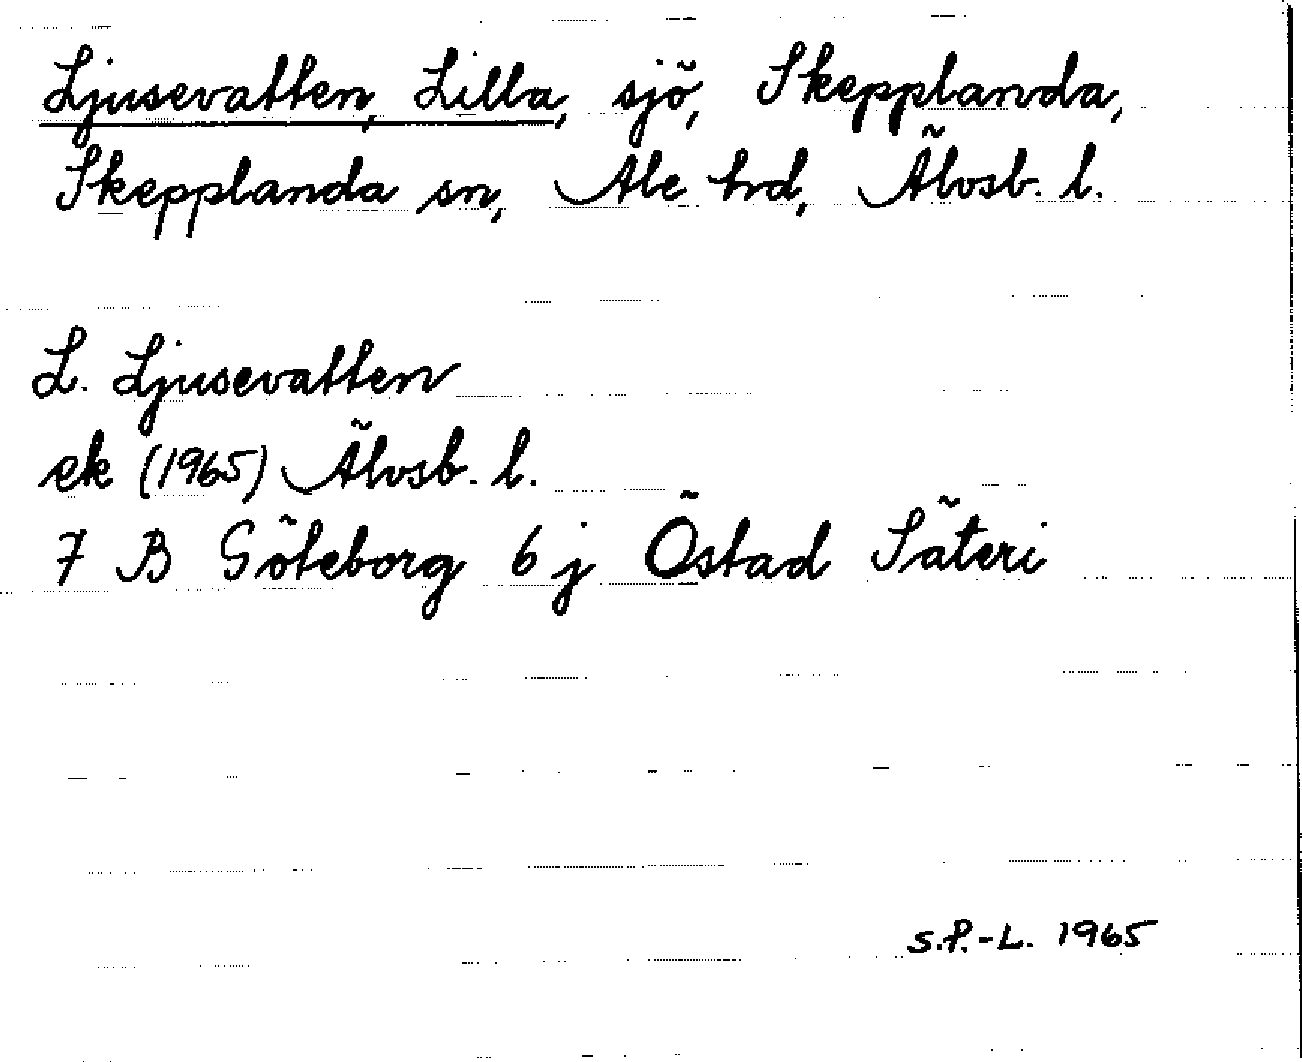 Ljusevatten, Lilla, sjö, Skepplanda,
Skepplanda sn, Ale hrd, Älvsb. l.
L. Ljusevatten
ek (1965) Älvsb. l.
7 B Göteborg 6 j Östad Säteri
S.P.-L. 1965